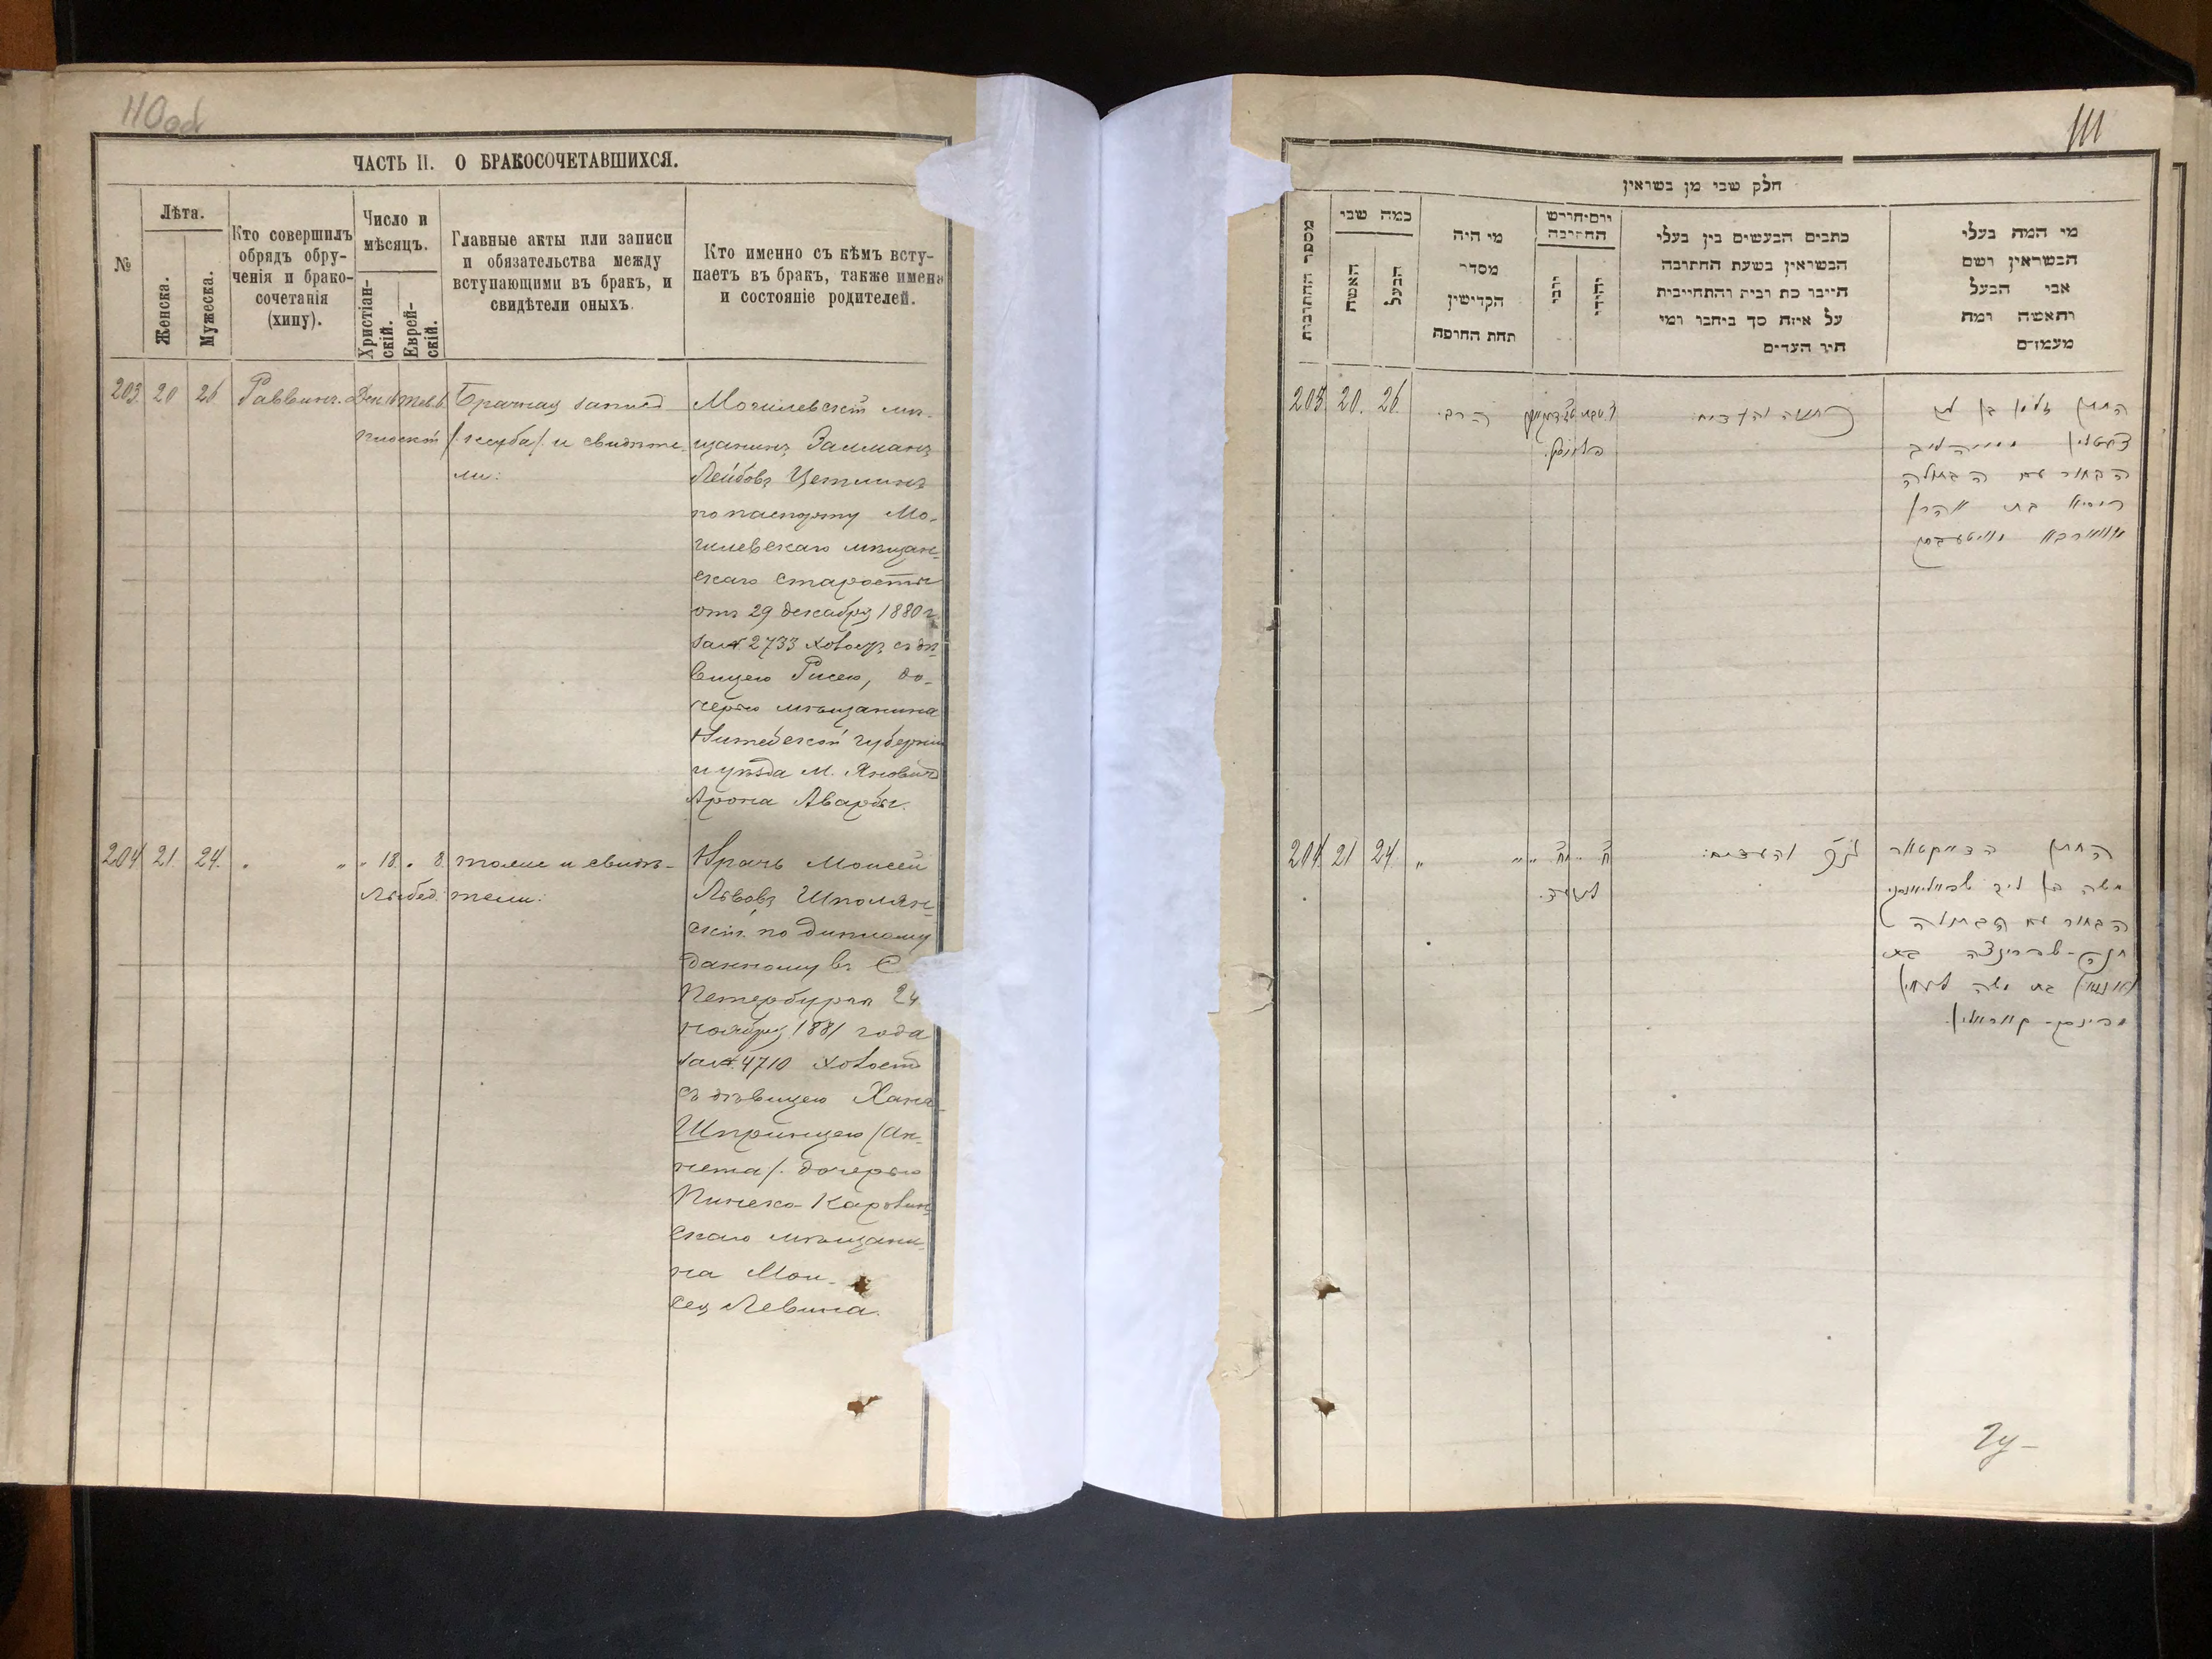 110 об
ЧАСТЬ II. О БРАКОСОЧЕТАВШИХСЯ.
№
Лѣта.
Женска.
Мужеска.
Кто совершилъ
обрядъ обру-
ченія и брако-
сочетанія
(хипу).
Число и
мѣсяцъ.
Христіан-
скій.
Еврей-
скій.
Главные акты или записи
и обязательства между
вступающими въ бракъ, и
свидѣтели оныхъ.
Кто именно съ кѣмъ всту-
паетъ въ бракъ, также имена
и состояніе родителей.
203. 20 26 Раввинъ.
Брачная запись
и свидѣте-
ли:
Могилевскій мѣ-
щанинъ Залманъ
Лейбовъ Цетлинъ
по паспорту Мо-
гилевскаго мѣщан-
скаго старосты
отъ 29 декабря 1880 г.
за № 2733 холостъ съ дѣ-
вицею Рисею, до-
черью мѣщанина
Витебской губерніи
и уѣзда м. Яновичъ
Арона Аварбы.
204 21. 24. " " " 18. " 8.
тоже и свидѣ-
тели:
Врачъ Моисей
Львовъ Шполян-
скій по диплому
данному въ С.
Петербургѣ 24
ноября 1881 года
за № 4710 холостъ
съ дѣвицею Хана-
Шпринцею /Ан-
нета/. дочерью
Пинско-Каролин-
скаго мѣщани-
на Мои-
сея Левина.
111
חלק שני מן נשואין
מספר החתונות
כמה שני
האשה
הבעל
מי היה
מסדר
הקדושין
תחת החופה
יום וחודש
החתונה
כתבים הנעשים בין בעלי
הנשואין בשעת החתונה
היינו כת ובית והתחייבות
על איזה סך ניתנו ומי
היו העדים
מי המה בעלי
הנשואין ושם
אבי הבעל
והאשה ומה
מעמדם
203 20. 26. הרב.
כתובה והעדים:
החתן זלמן בן ליב
צעטלין
הבחור עם הבתולה
ריסא בת אהרן
204. 21 24. "
כנ"ל והעדים:
החתן הדאקטאר
משה בן ליב שפאליאנסקי
הבחור עם הבתולה
חנה-שפרינצה בת
בת משה לעווין
פינסק-קאראלין.